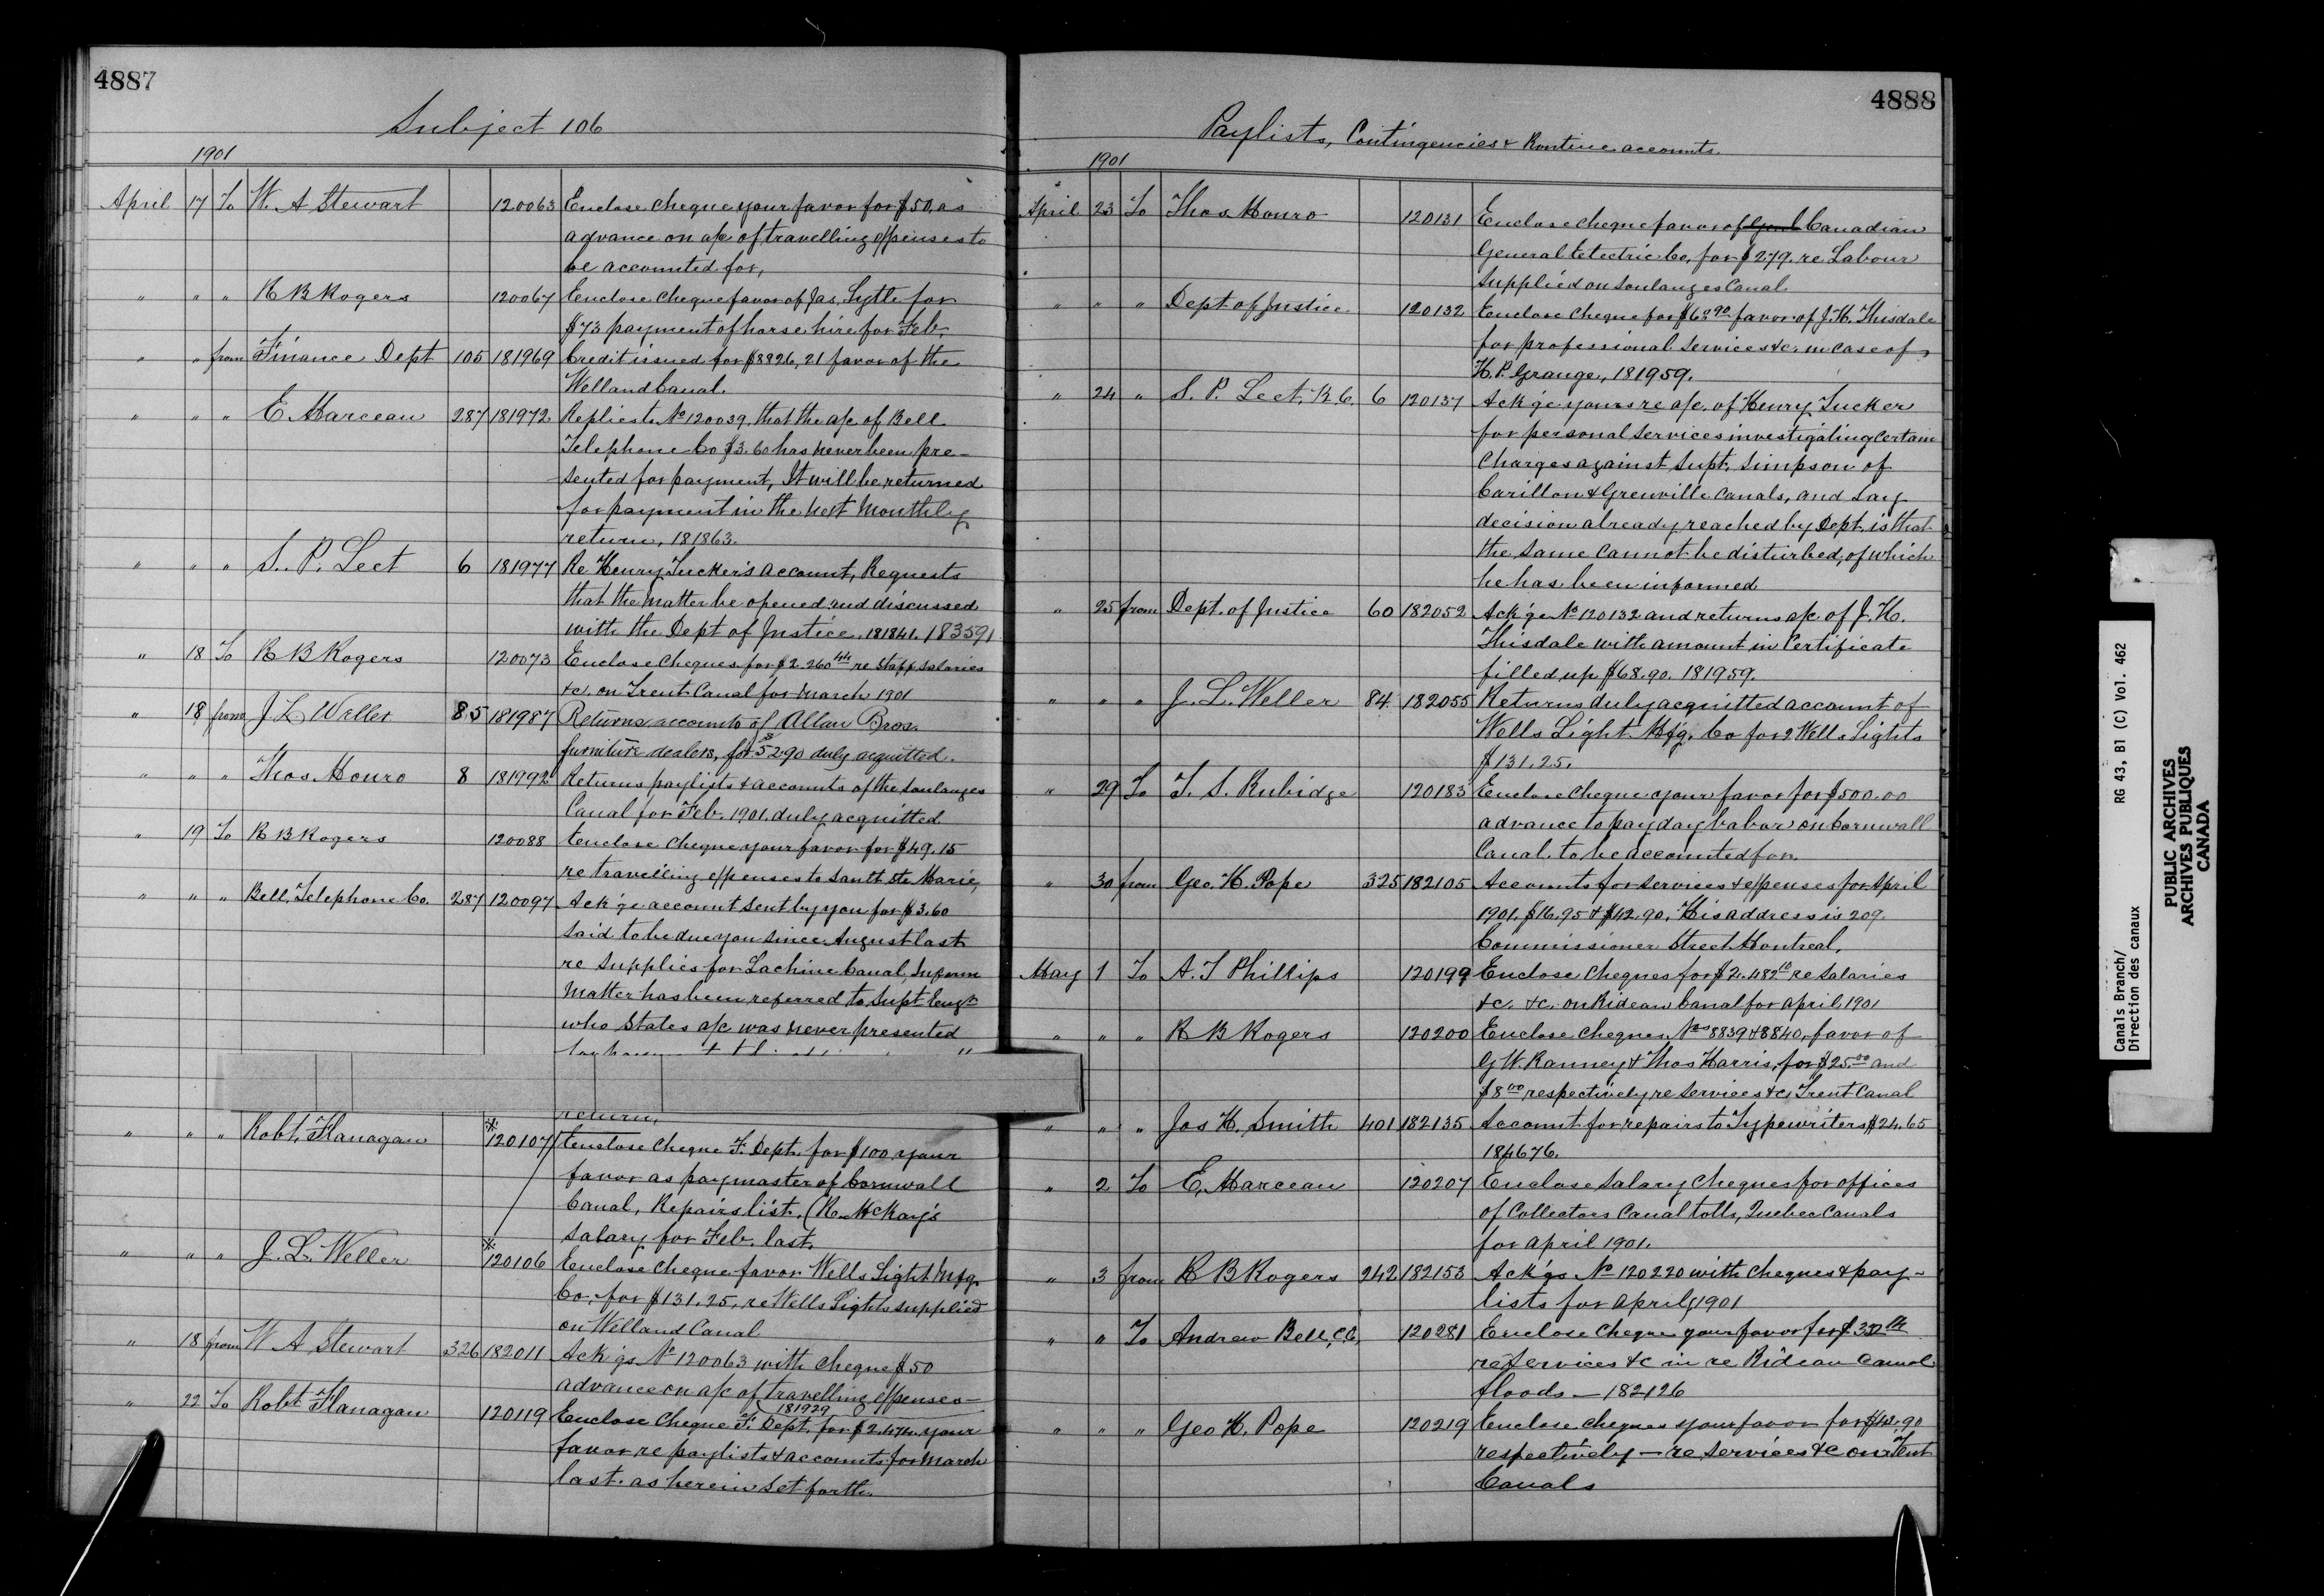 4887
Subject 106
1901
April 17 To W. A Stewart 120063 Enclose cheque your favor for $50. as
advance on a/c of travelling expenses to
be accounted for,
" " " R B Rogers 120067 Enclose cheque favor of Jas. Lytle for
$73 payment of horse hire for Feb.
" " from Finance Dept 105 181969 Credit issued for $8826,21 favor of the
Welland Canal.
" " " E Marceau 287 181972 Replies to No 120039. that the a/c of Bell
Telephone Co $3.60 has never been pre-
sented for payment, It will be returned
for payment in the next monthly
return, 181863.
" " " S. P. Leet 6 181977 Re Henry Tucker's account, Requests
that the matter be opened and discussed
with the Dept of Justice. 181841. 183591
" 18 To R B Rogers 120073 Enclose Cheques for $2.260 44 re staff salaries
&c. on Trent Canal for March 1901
" 18 from J L Weller 85 181987 Returns accounts of Allan Bros.
furniture dealers, for $5290 duly acquitted.
" " " Thos. Monro 8 181992 Returns paylists & accounts of the Soulanges
Canal for Feb. 1901. duly acquitted
" 19 To R B Rogers 120088 Enclose cheque your favor for $49.15
re travelling expenses to Sault Ste Marie,
" " " Bell Telephone Co. 287 120097 Ack'ge account sent by you for $3.60
said to be due you since August last
re supplies for Lachine Canal, Inform
matter has been referred to Supt Eng.
who states a/c was never presented
return,
" " " Robt. Flanagan * 120107 Enclose cheque F. Dept. for $100 your
favor as paymaster of Cornwall
Canal, Repairs list. (R. McKay's
salary for Feb. last.
" " " J. L. Weller * 120106 Enclose cheque favor Wells Light Mfg.
Co. for $131.25, re Wells Lights supplied
on Welland Canal
" 18 from W A Stewart 326 182011 Ack'gs No 120063 with cheque $50
advance on a/c of travelling expenses-
181929
" 22 To Robt Flanagan 120119 Enclose Cheque F. Dept. for $2.474. your
favor re paylists & accounts for March
last. as herein set forth.
4888
Paylists, Contingencies & Routine accounts.
1901
April 23 To Thos. Monro 120131 Enclose cheque favor of Genl Canadian
General Electric Co, for $279. re Labour
supplied on Soulanges Canal.
" " " Dept of Justice 120132 Enclose cheque for $68 90 favor of J. H. Thisdale
for professional services &c. in case of
H. P. Grange, 181959.
" 24 " S. P. Leet, K. C. 6 120137 Ack'ge yours re a/c. of Henry Tucker
for personal services investigating certain
charges against Supt. Simpson of
Carillon & Grenville Canals, and say
decision already reached by Dept. is that
the same cannot be disturbed, of which
he has been informed
" 25 from Dept. of Justice 60 182052 Ack'ge No 120132 and returns a/c. of J. H.
Thisdale with amount in Certificate
filled up $68.90. 181959.
" " " J. L. Weller 84 182055 Returns duly acquitted account of
Wells Light Mfg. Co for 2 Wells Lights
$131.25.
" 29 To T. S. Rubidge 120183 Enclose cheque your favor for $500.00
advance to pay day labor on Cornwall
Canal. to be accounted for.
" 30 from Geo. H. Pope 325 182105 Accounts for services & expenses for April
1901. $16.95 & $42.90. His address is 209.
Commissioner Street Montreal,
May 1 To A. T Phillips 120199 Enclose cheques for $2.482 10 re salaries
&c. &c. on Rideau Canal for April 1901
" " " R B Rogers 120200 Enclose cheques Nos 8839 & 8840, favor of
G W. Ranney & Thos Harris, for $25.00 and
$8 00 respectively re services &c, Trent Canal
" " " Jas H. Smith 401 182135 Account for repairs to Typewriters $24.65
184676.
" 2 To E. Marceau 120207 Enclose salary cheques for offices
of Collectors Canal tolls, Quebec Canals
for April 1901.
" 3 from R B Rogers 242 182153 Ack'gs No 120220 with cheques & pay-
lists for April, 1901
" " To Andrew Bell, C.E. 120281 Enclose cheque your favor for
re services &c in re Rideau Canal
floods - 182126
" " " Geo H. Pope 120219 Enclose cheques your favor for $42.90
respectively - re services &c on Trent
Canals
Canals Branch/ RG 43, B1 (C) Vol. 462
Direction des canaux
PUBLIC ARCHIVES
ARCHIVES PUBLIQUES
CANADA